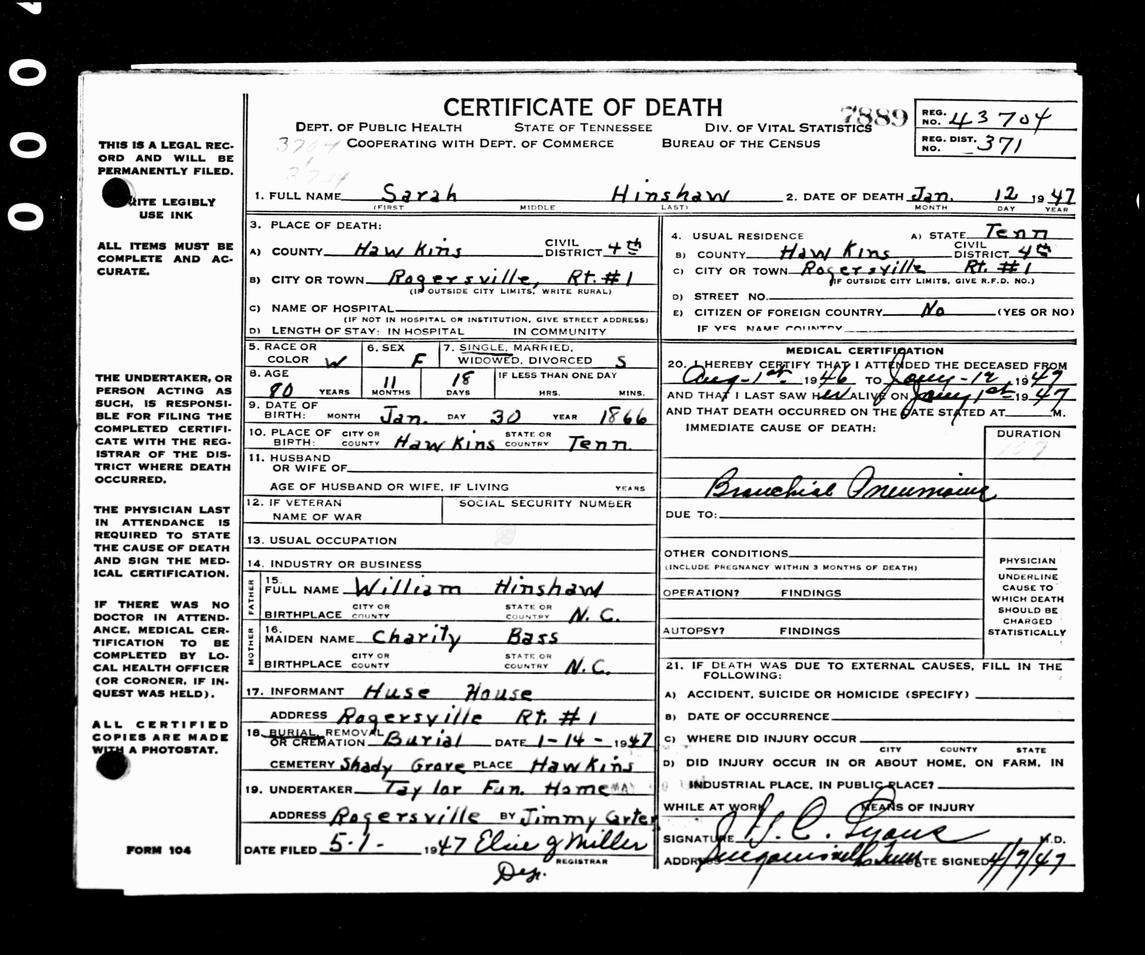 0004
CERTIFICATE OF DEATH
7889
DEPT. OF PUBLIC HEALTH STATE OF TENNESSEE DIV. OF VITAL STATISTICS
COOPERATING WITH DEPT. OF COMMERCE BUREAU OF THE CENSUS
REG. NO. 43704
REG. DIST. NO. 371
THIS IS A LEGAL REC-
ORD AND WILL BE
PERMANENTLY FILED.
WRITE LEGIBLY
USE INK
ALL ITEMS MUST BE
COMPLETE AND AC-
CURATE.
THE UNDERTAKER, OR
PERSON ACTING AS
SUCH, IS RESPONSI-
BLE FOR FILING THE
COMPLETED CERTIFI-
CATE WITH THE REG-
ISTRAR OF THE DIS-
TRICT WHERE DEATH
OCCURRED.
THE PHYSICIAN LAST
IN ATTENDANCE IS
REQUIRED TO STATE
THE CAUSE OF DEATH
AND SIGN THE MED-
ICAL CERTIFICATION.
IF THERE WAS NO
DOCTOR IN ATTEND-
ANCE, MEDICAL CER-
TIFICATION TO BE
COMPLETED BY LO-
CAL HEALTH OFFICER
(OR CORONER, IF IN-
QUEST WAS HELD).
ALL CERTIFIED
COPIES ARE MADE
WITH A PHOTOSTAT.
FORM 104
1. FULL NAME Sarah Hinshaw 2. DATE OF DEATH Jan. 12 1947
(FIRST) MIDDLE LAST) MONTH DAY YEAR
3. PLACE OF DEATH:
A) COUNTY Hawkins CIVIL DISTRICT 4th
B) CITY OR TOWN Rogersville, Rt. #1
(IF OUTSIDE CITY LIMITS, WRITE RURAL)
C) NAME OF HOSPITAL
(IF NOT IN HOSPITAL OR INSTITUTION, GIVE STREET ADDRESS)
D) LENGTH OF STAY: IN HOSPITAL IN COMMUNITY
4. USUAL RESIDENCE A) STATE Tenn
B) COUNTY Hawkins CIVIL DISTRICT 4th
C) CITY OR TOWN Rogersville Rt. #1
(IF OUTSIDE CITY LIMITS, GIVE R.F.D. NO.)
D) STREET NO.
E) CITIZEN OF FOREIGN COUNTRY No (YES OR NO)
IF YES, NAME COUNTRY
5. RACE OR COLOR W 6. SEX F 7. SINGLE, MARRIED, WIDOWED, DIVORCED S
8. AGE 80 YEARS 11 MONTHS 18 DAYS IF LESS THAN ONE DAY HRS. MINS.
9. DATE OF BIRTH: MONTH Jan. DAY 30 YEAR 1866
10. PLACE OF BIRTH: CITY OR COUNTY Hawkins STATE OR COUNTRY Tenn.
11. HUSBAND OR WIFE OF
AGE OF HUSBAND OR WIFE, IF LIVING YEARS
12. IF VETERAN NAME OF WAR SOCIAL SECURITY NUMBER
13. USUAL OCCUPATION
14. INDUSTRY OR BUSINESS
FATHER
15. FULL NAME William Hinshaw
BIRTHPLACE CITY OR COUNTY STATE OR COUNTRY N.C.
MOTHER
16. MAIDEN NAME Charity Bass
BIRTHPLACE CITY OR COUNTY STATE OR COUNTRY N.C.
17. INFORMANT Huse House
ADDRESS Rogersville Rt. #1
18. BURIAL, REMOVAL OR CREMATION Burial DATE 1-14-1947
CEMETERY Shady Grove PLACE Hawkins
19. UNDERTAKER Taylor Fun. Home
ADDRESS Rogersville BY Jimmy Carter
DATE FILED 5-1- 1947 Elsie J Miller
REGISTRAR
Dep.
MEDICAL CERTIFICATION
20. I HEREBY CERTIFY THAT I ATTENDED THE DECEASED FROM
Aug-1st 1946 TO Jany-12 1947
AND THAT I LAST SAW HER ALIVE ON Jany 1st 1947
AND THAT DEATH OCCURRED ON THE DATE STATED AT M.
IMMEDIATE CAUSE OF DEATH: DURATION
Bronchial Pneumonia
DUE TO:
OTHER CONDITIONS
(INCLUDE PREGNANCY WITHIN 3 MONTHS OF DEATH)
OPERATION? FINDINGS
AUTOPSY? FINDINGS
PHYSICIAN
UNDERLINE
CAUSE TO
WHICH DEATH
SHOULD BE
CHARGED
STATISTICALLY
21. IF DEATH WAS DUE TO EXTERNAL CAUSES, FILL IN THE
FOLLOWING:
A) ACCIDENT, SUICIDE OR HOMICIDE (SPECIFY)
B) DATE OF OCCURRENCE
C) WHERE DID INJURY OCCUR
CITY COUNTY STATE
D) DID INJURY OCCUR IN OR ABOUT HOME, ON FARM, IN
INDUSTRIAL PLACE, IN PUBLIC PLACE?
WHILE AT WORK MEANS OF INJURY
SIGNATURE H. C. Lyons M.D.
ADDRESS Surgoinsville Tenn DATE SIGNED 4/7/47